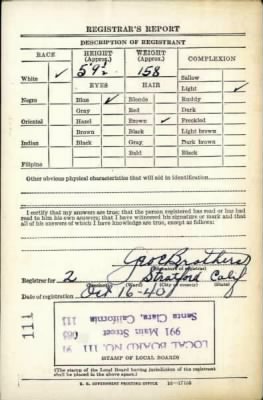 REGISTRAR'S REPORT
DESCRIPTION OF REGISTRANT
RACE HEIGHT (Approx.) WEIGHT (Approx.) COMPLEXION
5' 9½ 158
White ✓ Sallow
EYES HAIR Light ✓
Negro Blue ✓ Blonde Ruddy
Gray Red Dark
Oriental Hazel Brown ✓ Freckled
Brown Black Light brown
Indian Black Gray Dark brown
Bald Black
Filipino
Other obvious physical characteristics that will aid in identification
I certify that my answers are true; that the person registered has read or has had
read to him his own answers; that I have witnessed his signature or mark and that
all of his answers of which I have knowledge are true, except as follows:
Brothers
(Signature of registrar)
Registrar for 2 Stratford Calif
(Precinct) (Ward) (City or county) (State)
Date of registration Oct 16-40
111
LOCAL BOARD NO. 111
991 Main Street
Santa Clara, California
111
(STAMP OF LOCAL BOARD)
(The stamp of the Local Board having jurisdiction of the registrant
shall be placed in the above space.)
U. S. GOVERNMENT PRINTING OFFICE 16-17105